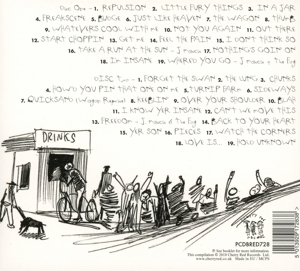 Disc One - 1. REPULSION 2. LITTLE FURY THINGS 3. IN A JAR
4. FREAKSCENE 5. BUDGE 6. JUST LIKE HEAVEN 7. THE WAGON 8. THUMB
9. WHATEVERS COOL WITH ME 10. NOT YOU AGAIN 11. OUT THERE
12. START CHOPPIN 13. GET ME 14. FEEL THE PAIN 15. I DON'T THINK SO
16. TAKE A RUN AT THE SUN - J MASCIS 17. NOTHINGS GOIN ON
18. I'M INSANE 19. WHERED YOU GO - J Mascis & The Fog
Disc Two - 1. FORGET THE SWAN 2. THE LUNG 3. CHUNKS
4. HOW'D YOU PIN THAT ON ME 5. TURNIP FARM 6. SIDEWAYS
7. QUICKSAND (Wagon Reprise) 8. KEEBLIN 9. OVER YOUR SHOULDER 10. BLAH
11. I KNOW YER INSANE 12. CAN'T WE MOVE THIS
13. FREEDOM - J Mascis & The Fog 14. BACK TO YOUR HEART
15. YER SON 16. PIECES 17. WATCH THE CORNERS
18. LOVE IS... 19. HOLD UNKNOWN
DRINKS
PCDBRED728
See booklet for more information.
This compilation © 2018 Cherry Red Records Ltd.
Made in EU - MCPS